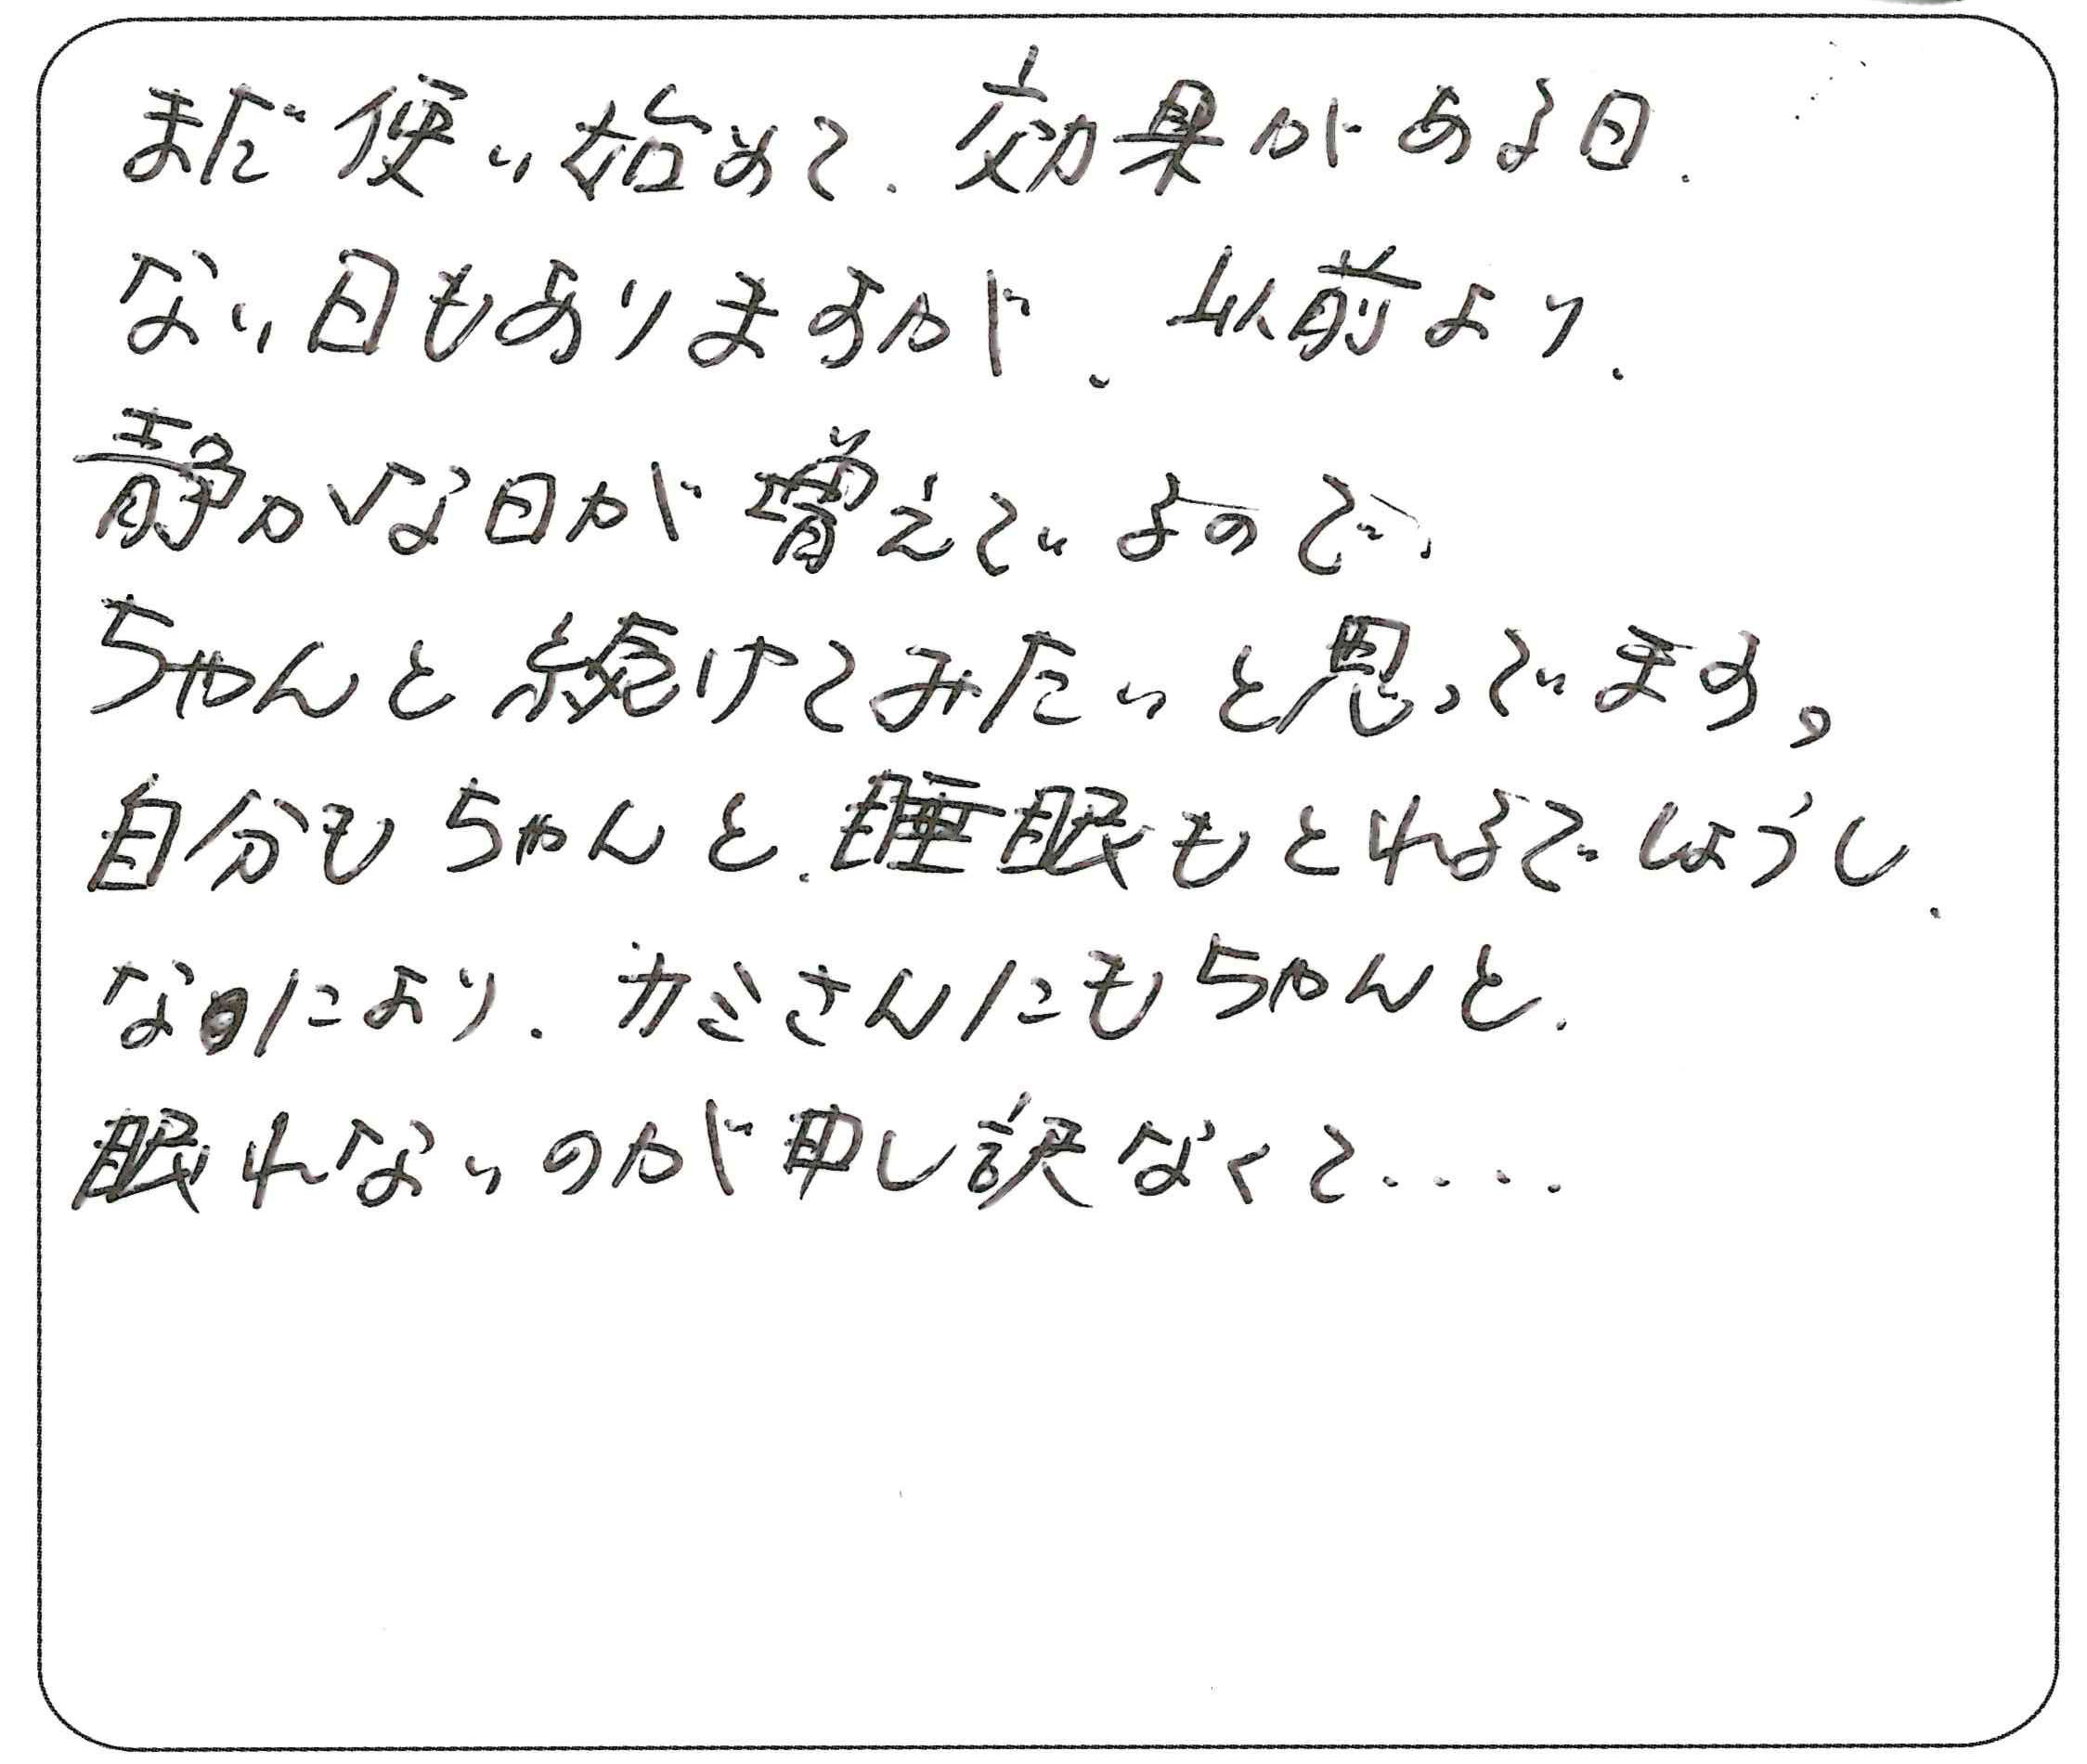 まだ使い始めて、効果がある日、
ない日もありますが、以前より、
静かな日が増えているので、
ちゃんと続けてみたいと思っています。
自分もちゃんと、睡眠もとれるでしょうし、
なにより、カミさんにもちゃんと、
眠れないのが申し訳なくて....